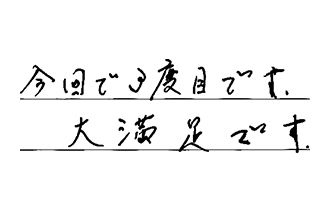 今回で3度目です.
大満足です.